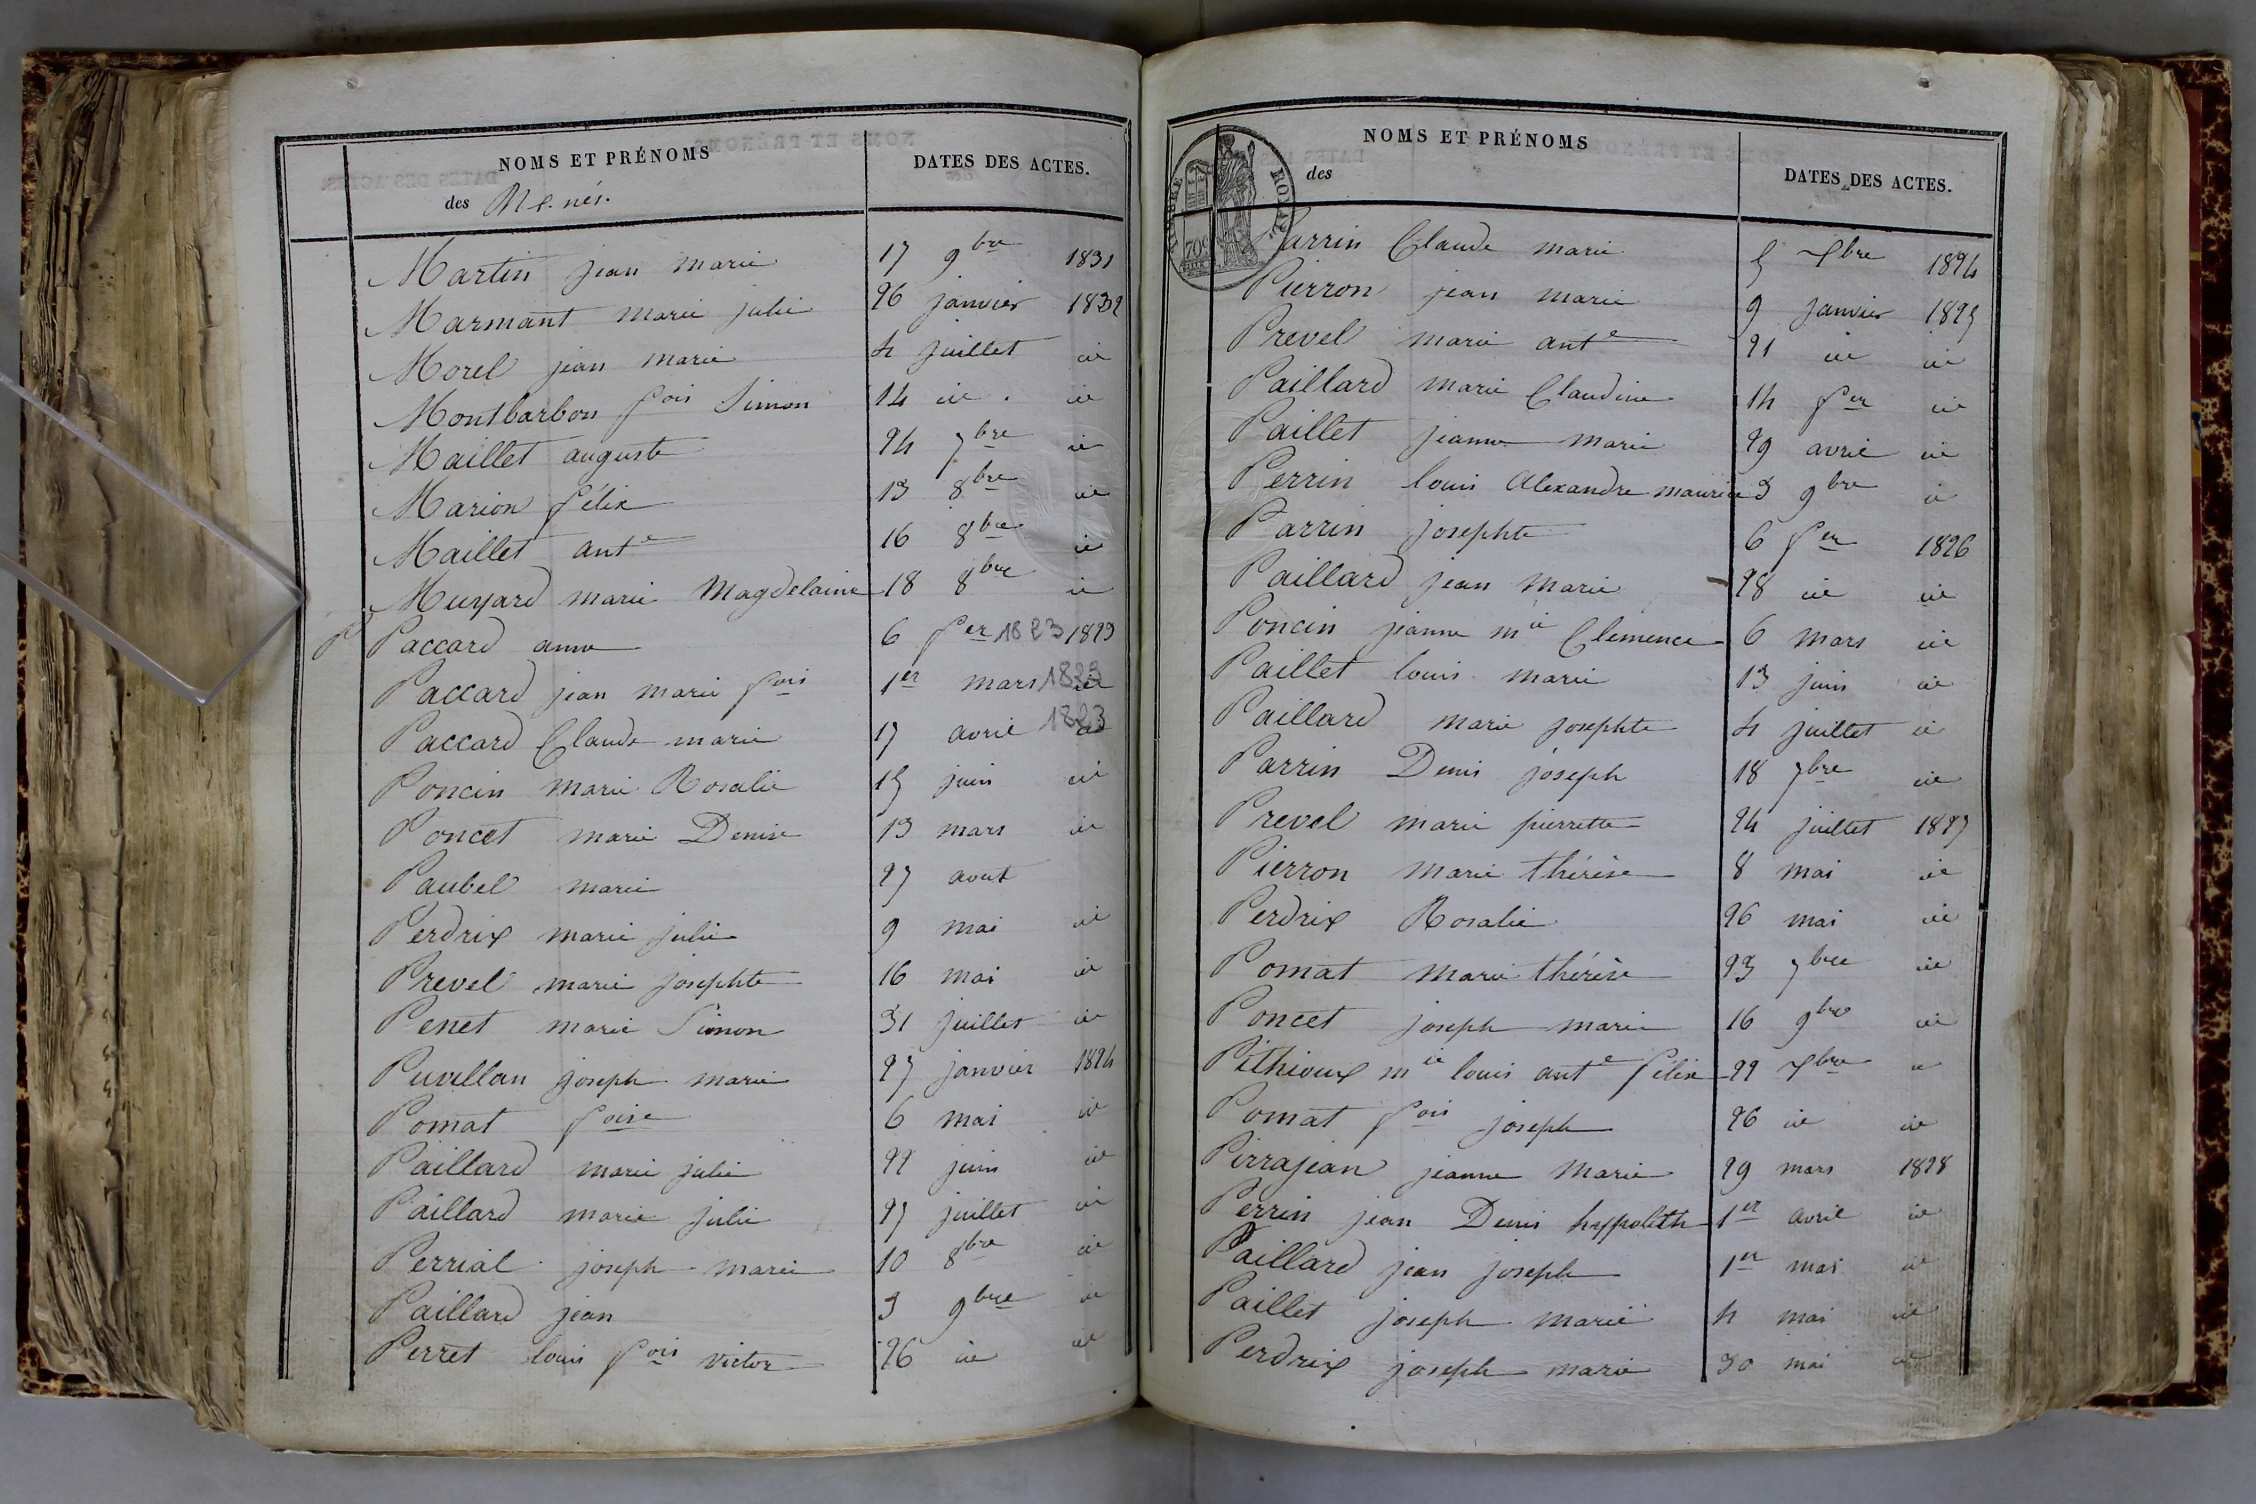 NOMS ET PRÉNOMS
DATES DES ACTES.
des N.é. nés.
Martin jean marie 17 9bre 1831
Marmant marie julie 26 janvier 1832
Morel jean marie 4 juillet id
Montbarbon fois Simon 14 id. id
Maillet auguste 24 7bre id
Marion félix 13 8bre id
Maillet ante 16 8bre id
Muyard marie Magdelaine 18 8bre id
P Paccard anne 6 fer 1823 1823
Paccard jean marie fois 1er mars 1823 id
Paccard Claude marie 17 avril 1823 id
Poncin marie Rosalie 15 juin id
Poncet marie Denise 13 mars id
Paubel marie 27 aout
Perdrix marie julie 9 mai id
Prevel marie josephte 16 mai id
Penet marie Simon 31 juillet id
Puvillan joseph marie 27 janvier 1824
Pomat foise 6 mai id
Paillard marie julie 22 juin id
Paillard marie julie 27 juillet id
Perrial joseph marie 10 8bre id
Paillard jean 3 9bre id
Perret louis fois victor 26 id id
NOMS ET PRÉNOMS
des
DATES DES ACTES.
TIMBRE ROYAL
70c
Parrin Claude marie 5 Xbre 1824
Pierron jean marie 9 janvier 1825
Prevel marie ante 21 id id
Paillard marie Claudine 14 fer id
Paillet jeanne marie 29 avril id
Perrin louis Alexandre maurice 3 9bre id
Parrin josephte 6 fer 1826
Paillard jean marie 28 id id
Poncin jeanne mie Clemence 6 mars id
Paillet louis marie 13 juin id
Paillard marie josephte 4 juillet id
Parrin Denis joseph 18 7bre id
Prevel marie pierrette 24 juillet 1827
Pierron marie thérèse 8 mai id
Perdrix Rosalie 26 mai id
Pomat marie thérèse 23 7bre id
Poncet joseph marie 16 9bre id
Pithioux mie louis ante félix 22 Xbre id
Pomat fois joseph 26 id id
Pirrajean jeanne marie 29 mars 1828
Perrin jean Denis hyppolith 1er avril id
Paillard jean joseph 1er mai id
Paillet joseph marie 4 mai id
Perdrix joseph marie 30 mai id